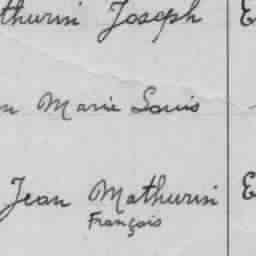 thurin Joseph E
n Marie Louis
Jean Mathurin E
François